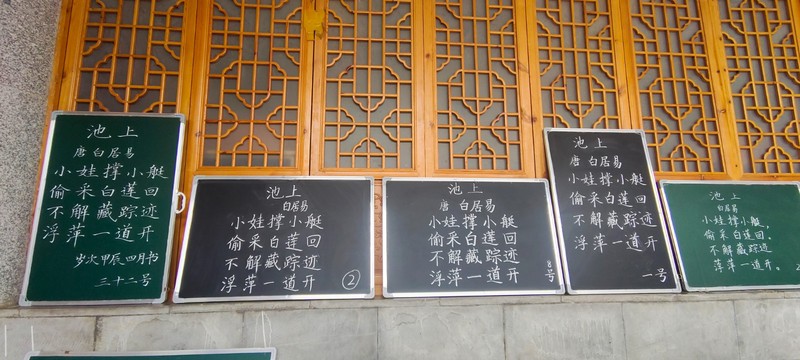 池上
唐 白居易
小娃撑小艇
偷采白莲回
不解藏踪迹
浮萍一道开
岁次甲辰四月书
三十二号
池上
白居易
小娃撑小艇
偷采白莲回
不解藏踪迹
浮萍一道开
②
池上
唐 白居易
小娃撑小艇
偷采白莲回
不解藏踪迹
浮萍一道开
8号
池上
唐 白居易
小娃撑小艇
偷采白莲回
不解藏踪迹
浮萍一道开
一号
池上
白居易
小娃撑小艇，
偷采白莲回。
不解藏踪迹
萍萍一道开。